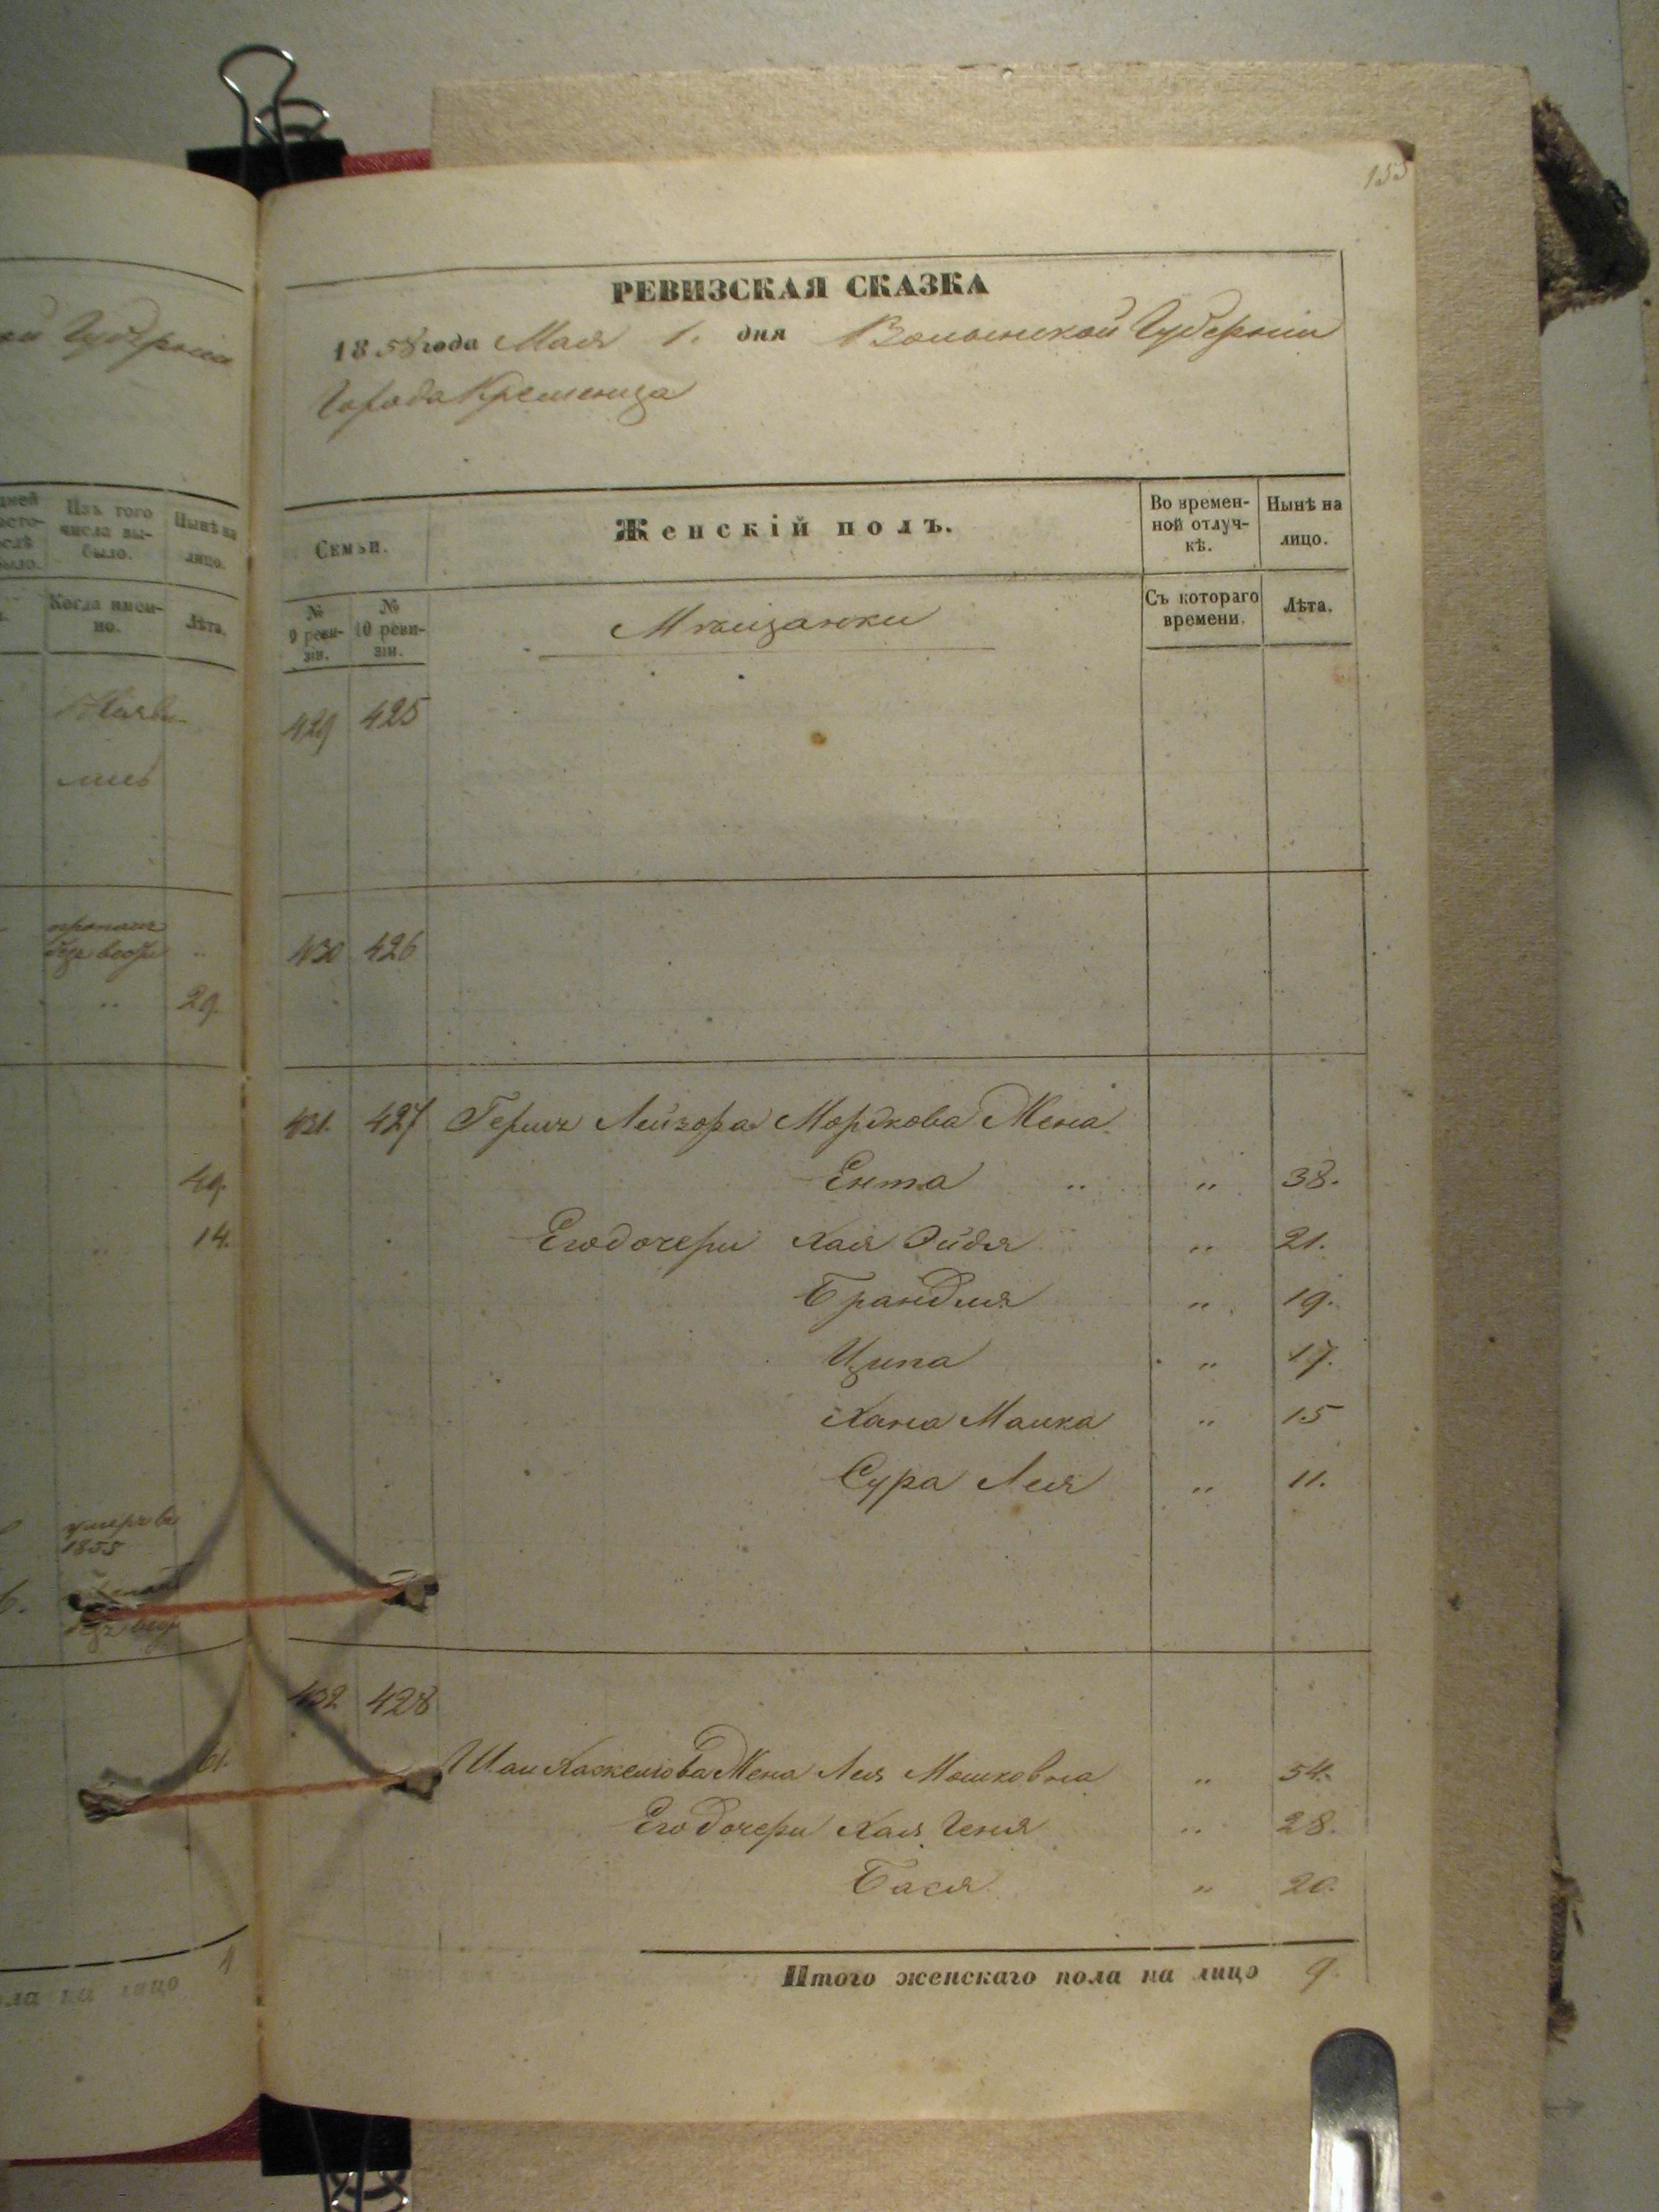 155
РЕВИЗСКАЯ СКАЗКА
1858 года Мая 1. дня Волынской Губернiи
Города Кременца
Семьи.
Женскiй полъ.
Во времен-
ной отлуч-
кѣ.
Нынѣ на
лицо.
№
9 реви-
зiи.
№
10 реви-
зiи.
Мѣщанки
Съ котораго
времени.
Лѣта.
429 425
430 426
431. 427 Гершъ Лейзора Мордкова Жена
Ента „ „ 38.
Его дочери Хая Эйдля „ 21.
Брандля „ 19.
Ципа „ 17.
Хана Малка „ 15
Сура Лея „ 11.
432 428
Жена Лея Мошковна „ 54.
Его Дочери Хая Геня „ 28.
Бася „ 20.
Итого женскаго пола на лицо 9.
Изъ того
числа вы-
было.
Нынѣ на
лицо.
Когда имен-
но.
Лѣта.
29.
49.
14.
умеръ въ
1855
61.
1
ла на лицо